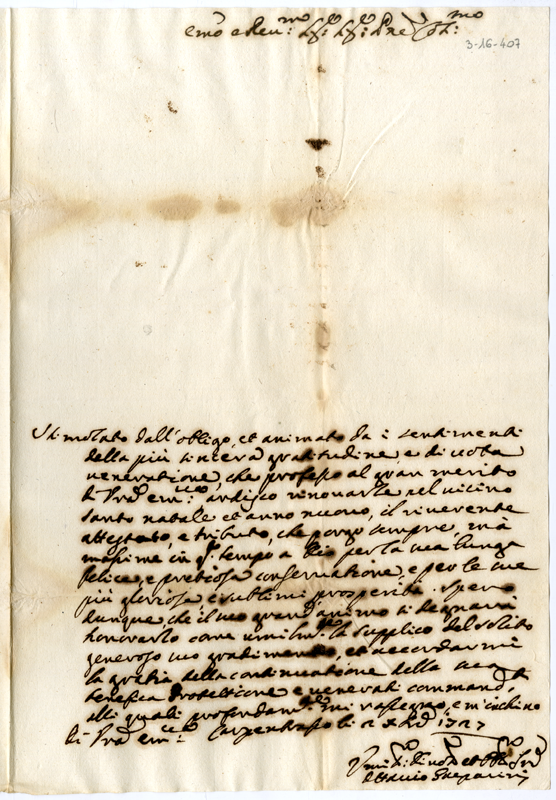 Emo e Reu.mo Sig.r Sig.r Pne Col.mo
3-16-407
Stimolato dall'obligo, et animato da i sentimenti
della più sincera gratitudine e diuota
veneratione, che professo al gran merito
di Vra em.za ardisco rinouarle nel vicino
santo natale et anno nuouo, il riuerente
attestato, e tributo, che porgo sempre, mà
massime in qto tempo a Dio per la sua lunga
felice, e pretiosa conseruatione, e per le sue
più gloriose e sublimi prosperità. Spero
dunque, che il suo grand'animo si degnarà
honorarlo come umilm.te la supplico del solito
generoso suo gradimento, et accordarmi
la gratia della continuatione della sua
benefica Protettione e venerati commandi,
alli quali profondam.te mi rassegno, e m'inchino
di Vra em.za Carpentrasso li 2 Xbre 1727
Umil.o Diuo et Obl. Sre
Ottauio Gasparini